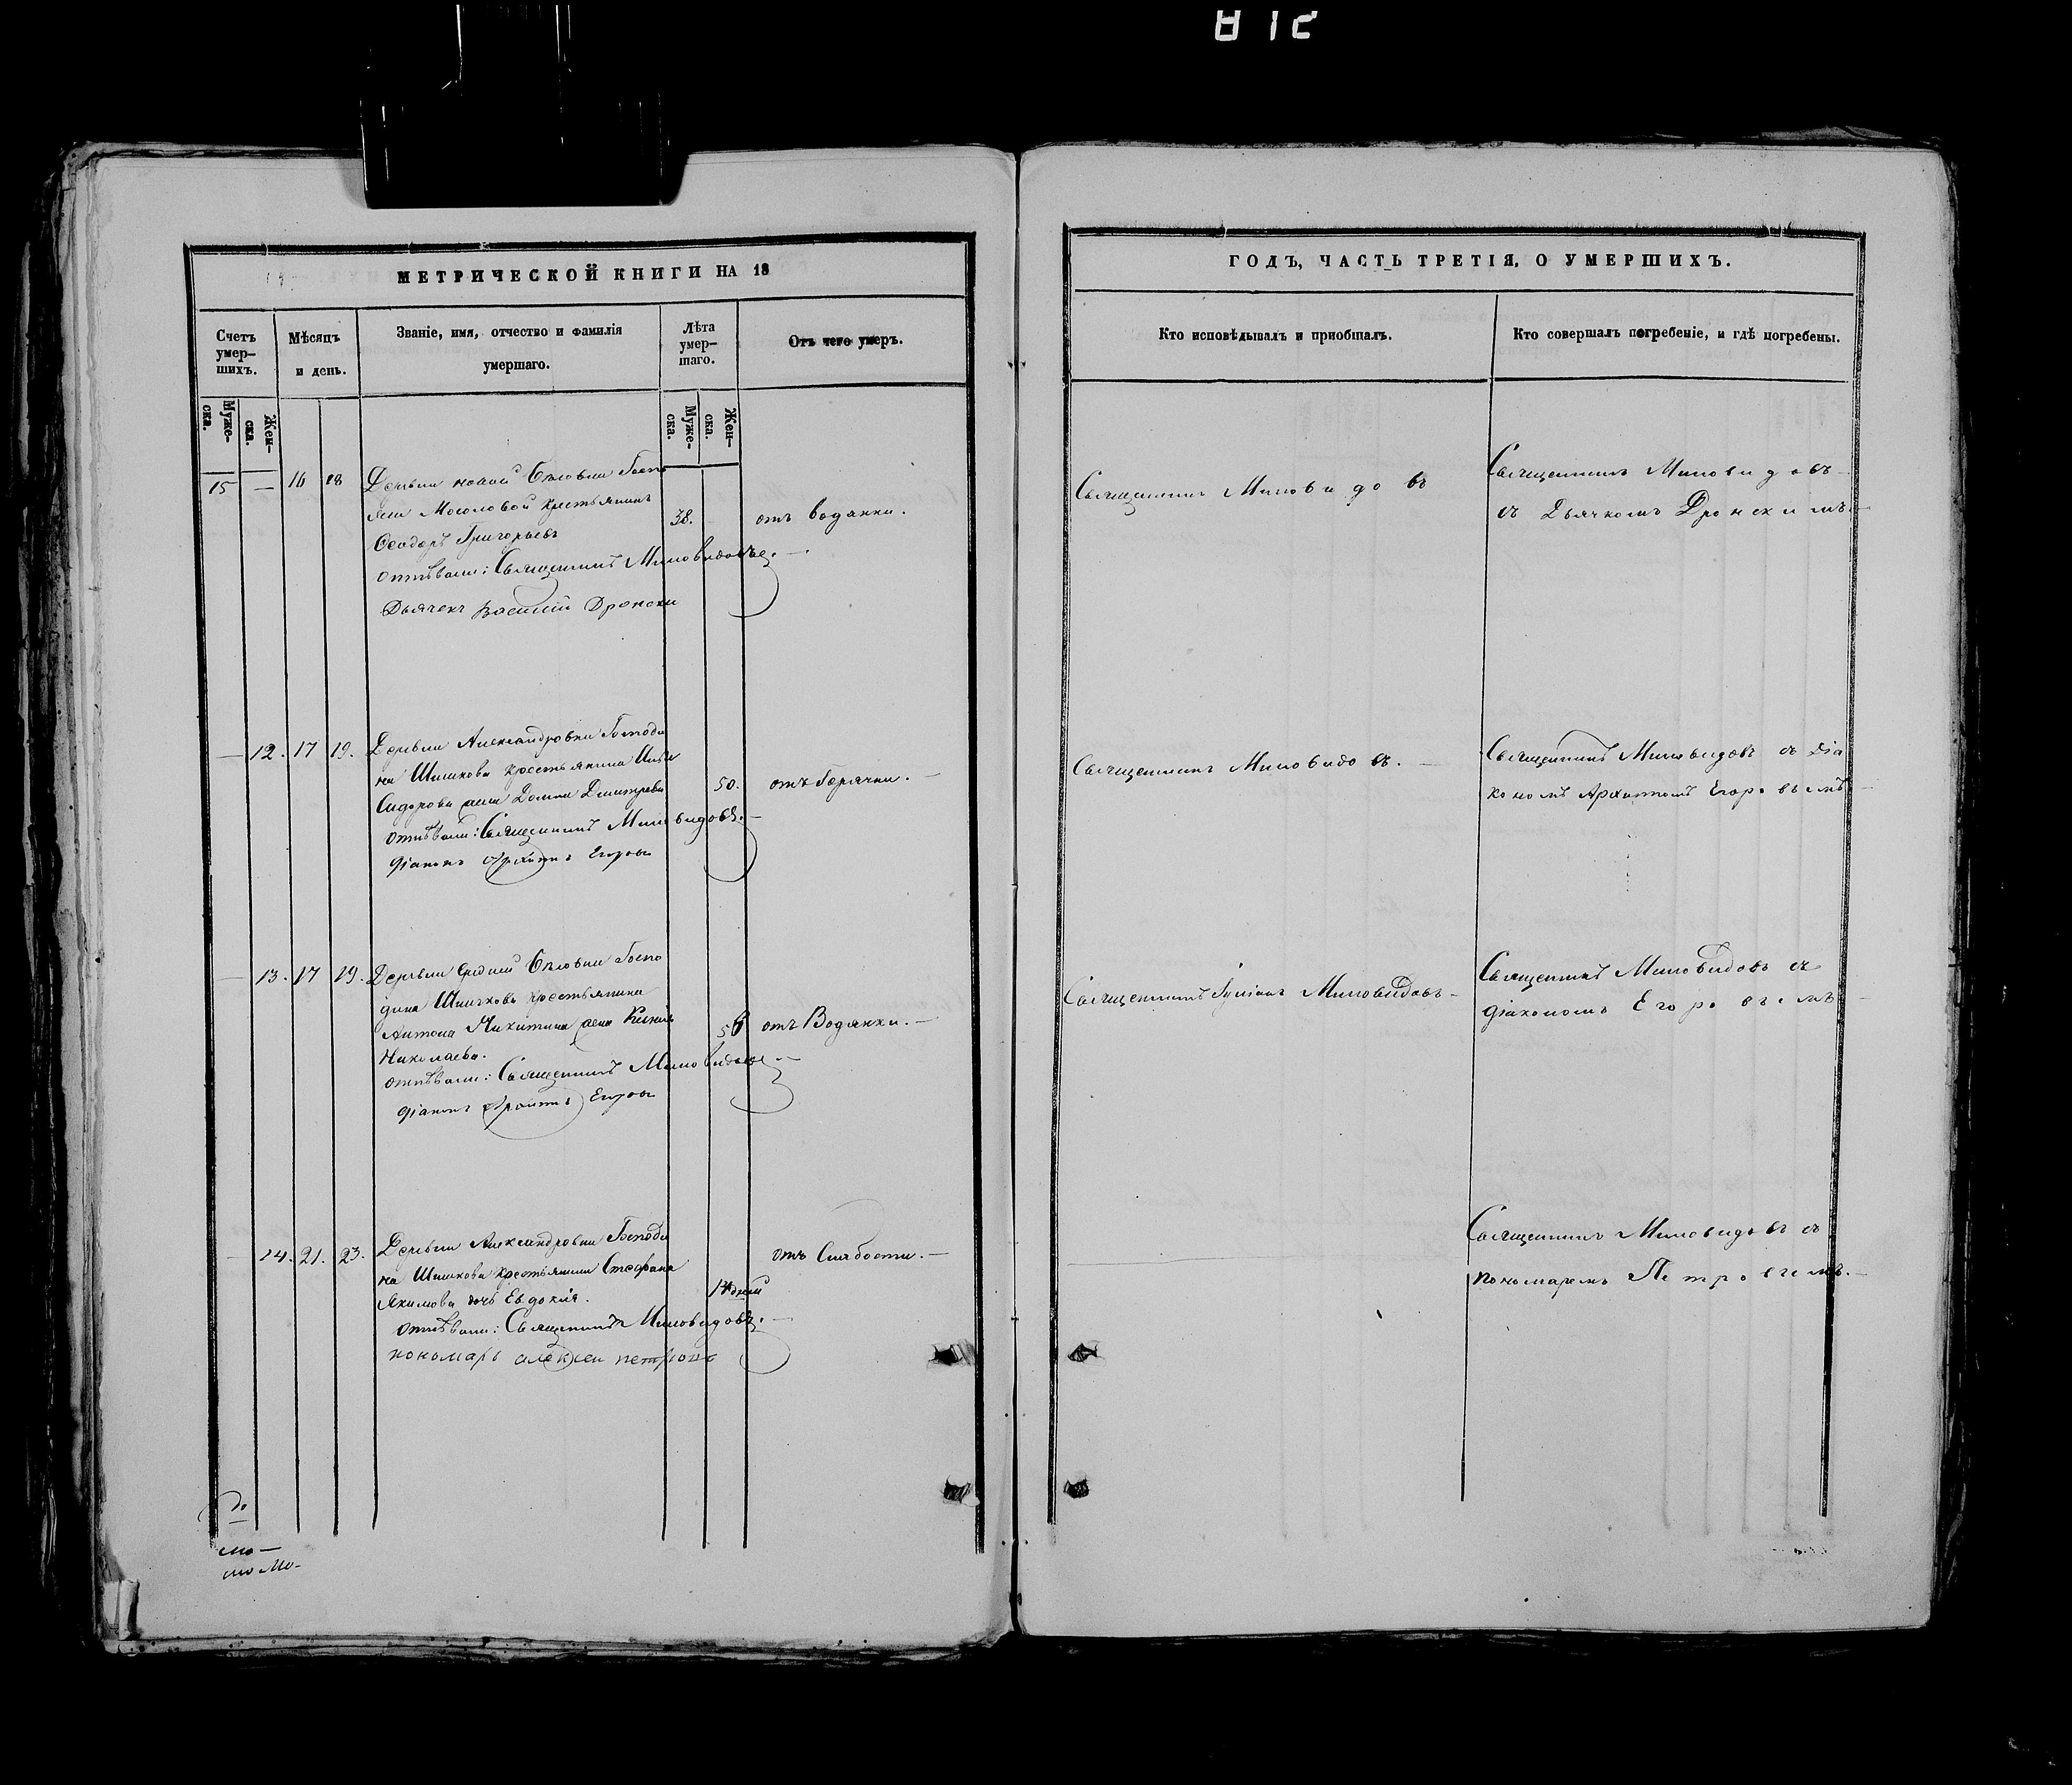 812
МЕТРИЧЕСКОЙ КНИГИ НА 18
Счетъ умер-
шихъ.
Мѣсяцъ
и день.
Званіе, имя, отчество и фамилія
умершаго.
Лѣта
умер-
шаго.
Отъ чего умеръ.
Муже-
ска.
Жен-
ска.
Муже-
ска.
Жен-
ска.
15 — 16 18 Деревни новой Госпо
жи Мосоловой крестьянинъ
Ѳеодоръ Григорьевъ
38. отъ водянки.
отпѣвали: Священникъ Миловидовъ.
Дьячекъ Василій Дронски
— 12. 17 19. Деревни Александровки Господи
на Шишкова крестьянина Ильи
Сидорова жена Домна Дмитріева
50. отъ Горячки. —
отпѣвали: Священникъ Миловидовъ. —
діаконъ Архипъ Егоровъ
— 13. 17 19. Деревни Средней Госпо
дина Шишкова крестьянина
Антона Никитина жена
Николаева.
отъ Водянки. —
отпѣвали: Священникъ Миловидовъ. —
діаконъ Архипъ Егоровъ
— 14. 21. 23. Деревни Александровки Господи
на Шишкова крестьянина Стефана
Якимова дочь Евдокія.
дней
отъ Слабости. —
отпѣвали: Священникъ Миловидовъ. —
пономарь алексеи петровъ
ГОДЪ, ЧАСТЬ ТРЕТІЯ, О УМЕРШИХЪ.
Кто исповѣдывалъ и пріобщалъ.
Кто совершалъ погребеніе, и гдѣ погребены.
Священникъ Миловидовъ
Священникъ Миловидовъ
съ Дьячкомъ Дронскимъ. —
Священникъ Миловидовъ. —
Священникъ Миловидовъ съ Діа
кономъ Архипомъ Егоровымъ —
Священникъ Миловидовъ —
Священникъ Миловидовъ съ
діакономъ Егоровымъ —
Священникъ Миловидовъ съ
пономаремъ Петровымъ. —